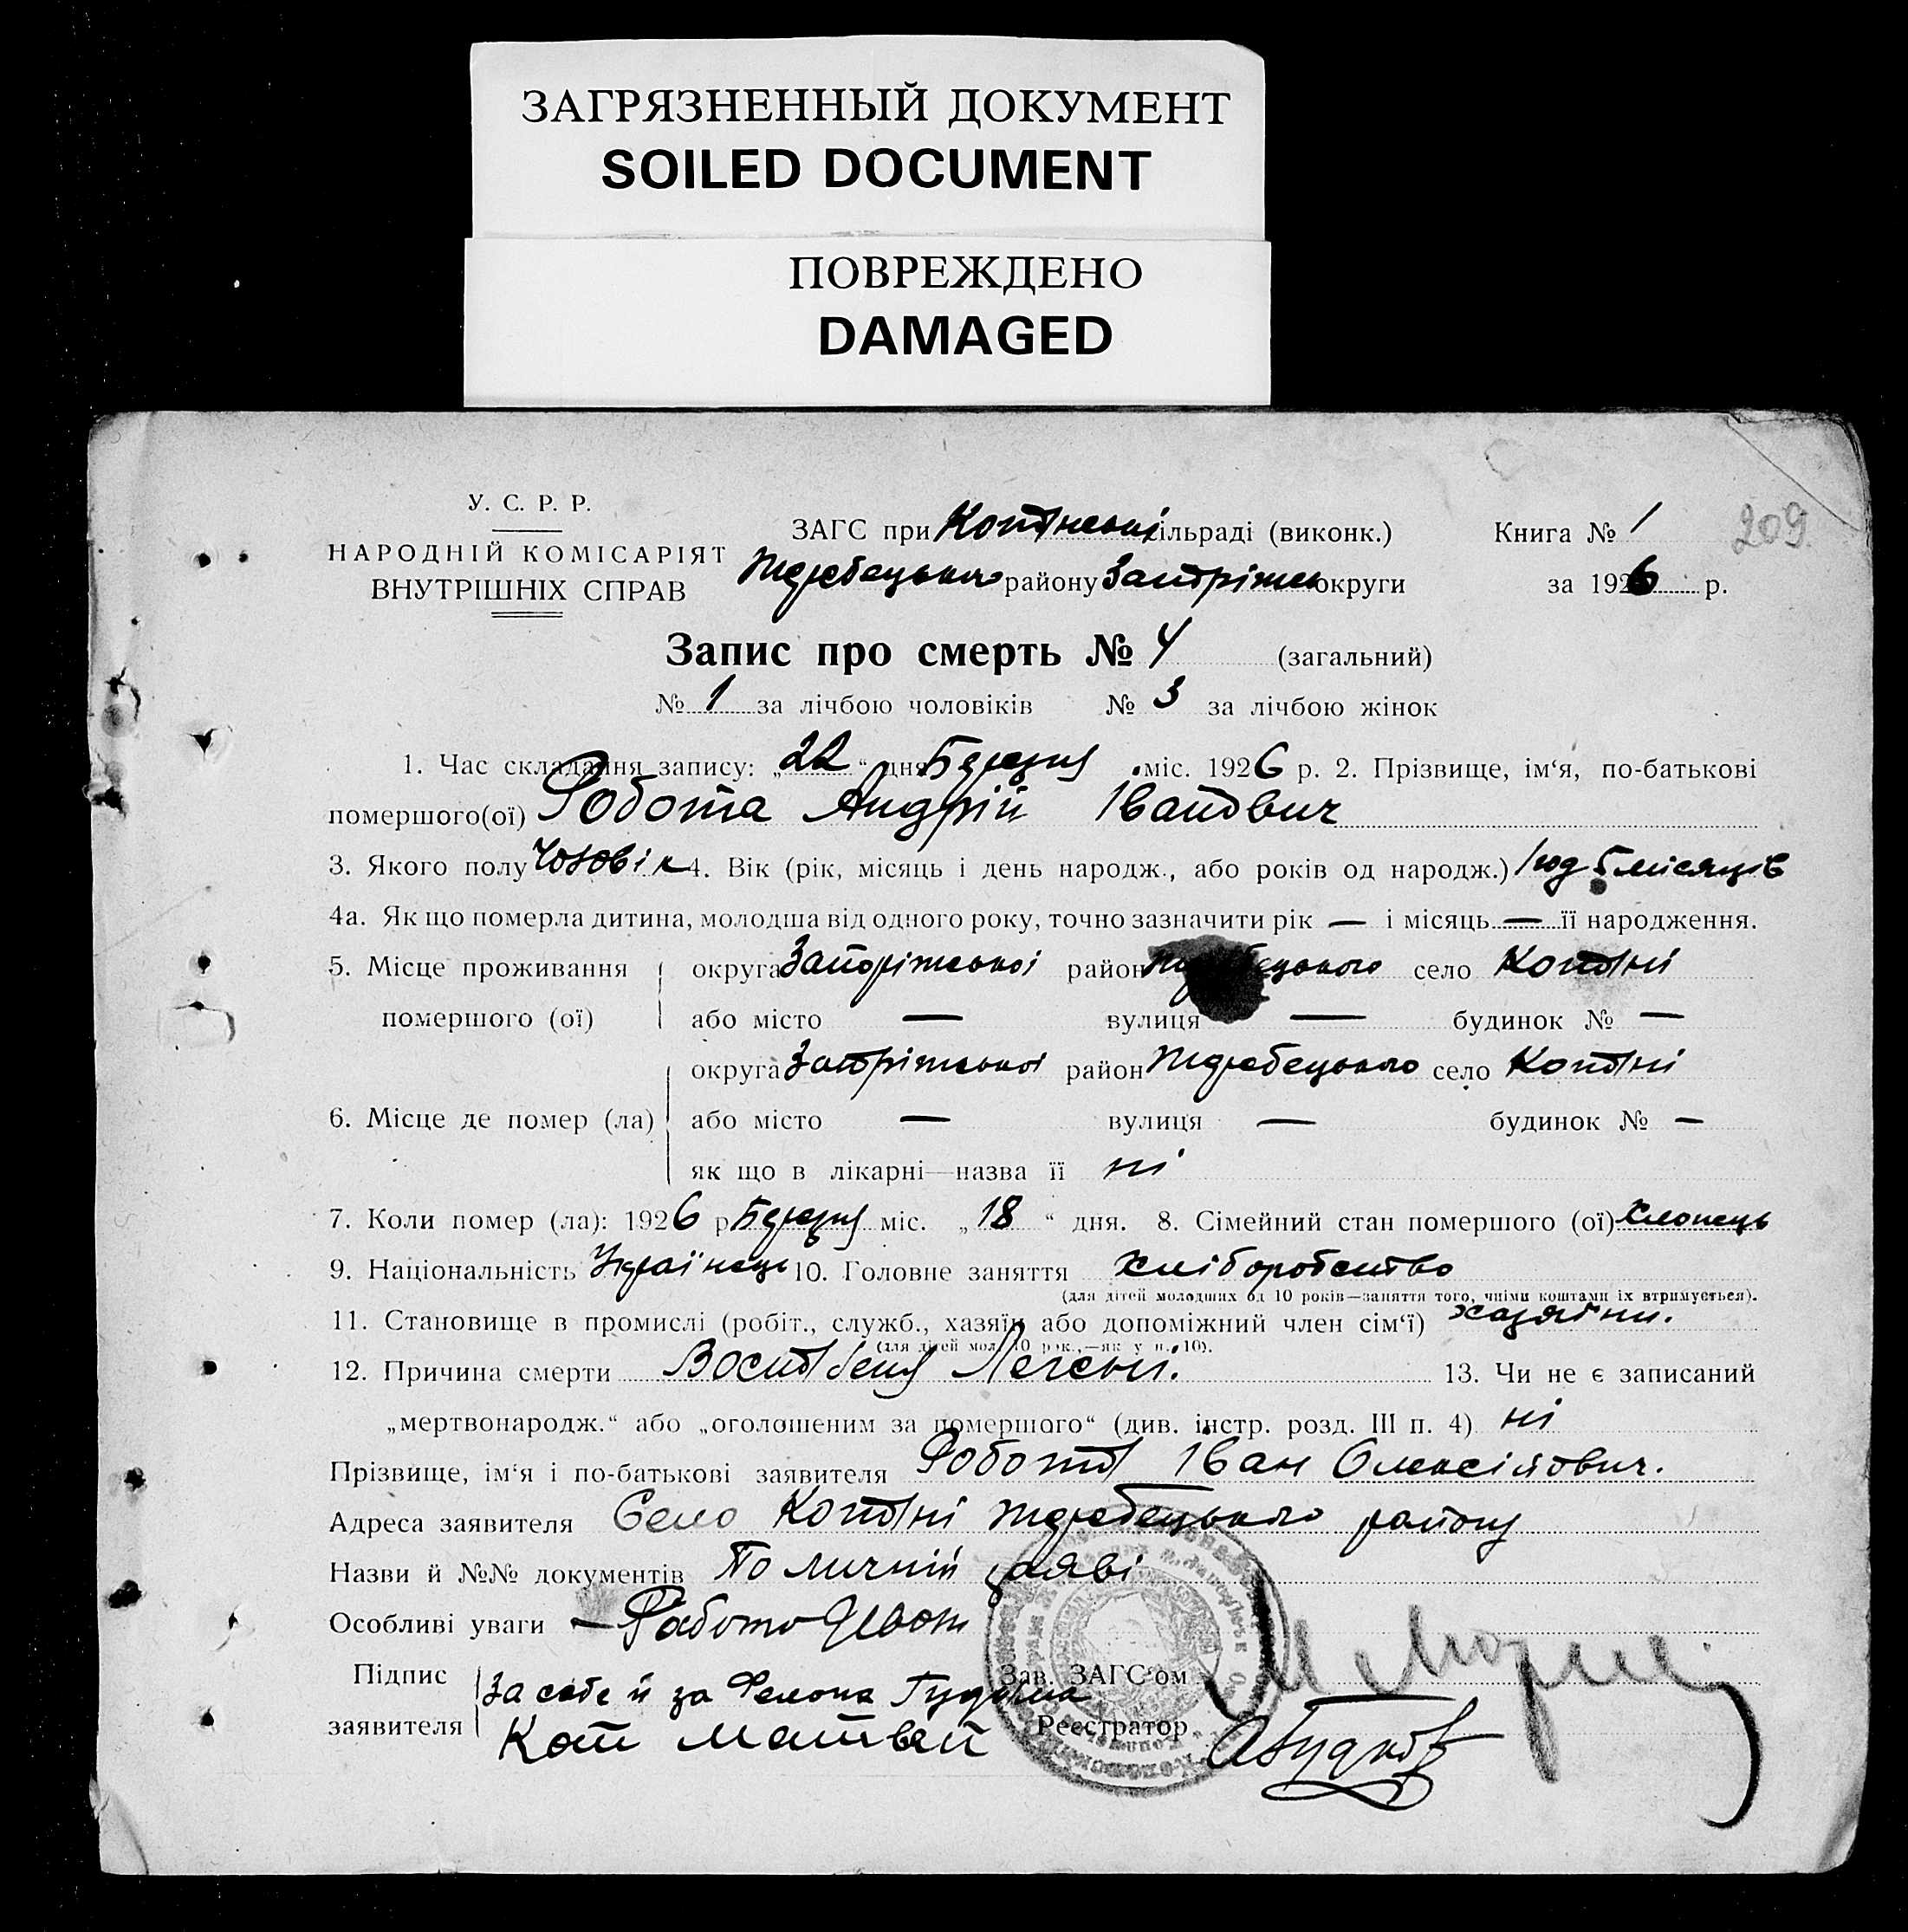 ЗАГРЯЗНЕННЫЙ ДОКУМЕНТ
SOILED DOCUMENT
ПОВРЕЖДЕНО
DAMAGED
209
У. С. Р. Р.
НАРОДНІЙ КОМІСАРІЯТ
ВНУТРІШНІХ СПРАВ
ЗАГС при сільраді (виконк.) Книга № 1
району Запоріжськ округи за 1926 р.
Запис про смерть № 4 (загальний)
№ 1 за лічбою чоловіків № 3 за лічбою жінок
1. Час складання запису: „22“ дня Березня міс. 1926 р. 2. Прізвище, ім‘я, по-батькові
помершого(ої) Робота Андрій Іванович
3. Якого полу Чоловік 4. Вік (рік, місяць і день народж., або років од народж.) 1 год 5 місяців
4а. Як що померла дитина, молодша від одного року, точно зазначити рік — і місяць — її народження.
5. Місце проживання округа Запоріжської район село Копані
помершого (ої) або місто — вулиця — будинок № —
округа Запоріжської район Жеребецького село Копані
6. Місце де помер (ла) або місто — вулиця — будинок № —
як що в лікарні—назва її ні
7. Коли помер (ла): 1926 р. Березня міс. „18“ дня. 8. Сімейний стан помершого (ої) хлопець
9. Національність Українець 10. Головне заняття хліборобство
(для дітей молодших од 10 років—заняття того, чиїми коштами їх втримується).
11. Становище в промислі (робіт., служб., хазяїн або допоміжний член сім‘ї) хазяїни.
(для дітей мол. 10 рок.,—як у п. 10).
12. Причина смерти Легкых. 13. Чи не є записаний
„мертвонародж.“ або „оголошеним за помершого“ (див. інстр. розд. III п. 4) ні
Прізвище, ім‘я і по-батькові заявителя Робота Іван Олексійович.
Адреса заявителя Село Копані Жеребецького району
Назви й №№ документів По личній заяві
Особливі уваги — Работа
Підпис За себе й за Зав. ЗАГС‘ом
заявителя Кот Матвей Реєстратор